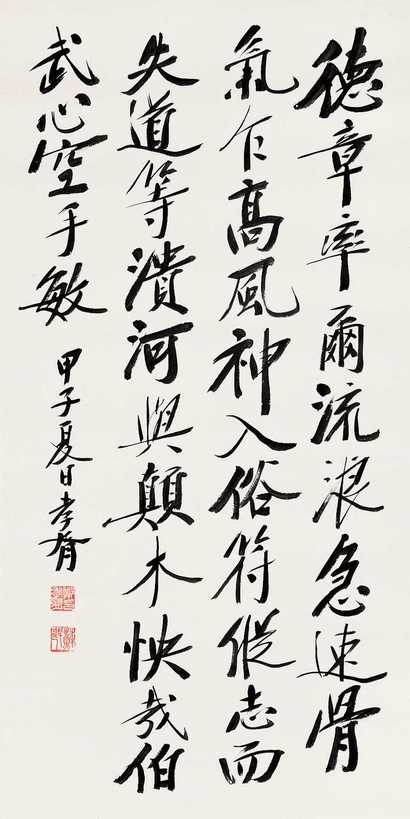 德章率爾流浪急速骨
氣乍高風神入俗符從志而
失道等潰河與顛木快哉伯
武心空手敏
甲子夏日孝胥